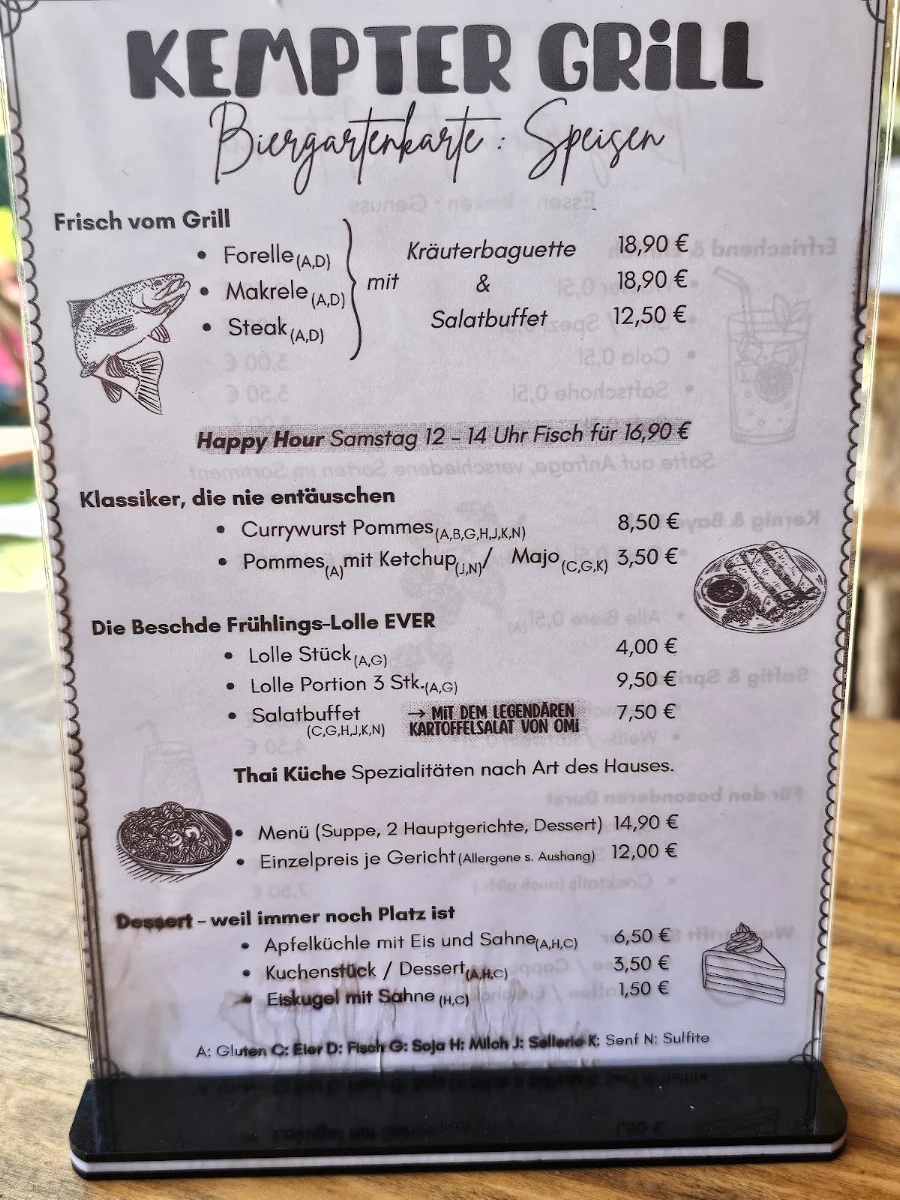 KEMPTER GRiLL
Biergartenkarte : Speisen
Frisch vom Grill
• Forelle(A,D) mit Kräuterbaguette 18,90 €
• Makrele(A,D) & 18,90 €
• Steak(A,D) Salatbuffet 12,50 €
Happy Hour Samstag 12 - 14 Uhr Fisch für 16,90 €
Klassiker, die nie entäuschen
• Currywurst Pommes(A,B,G,H,J,K,N) 8,50 €
• Pommes(A)mit Ketchup(J,N)/ Majo(C,G,K) 3,50 €
Die Beschde Frühlings-Lolle EVER
• Lolle Stück(A,G) 4,00 €
• Lolle Portion 3 Stk.(A,G) 9,50 €
• Salatbuffet (C,G,H,J,K,N) → MiT DEM LEGENDÄREN KARTOFFELSALAT VON OMi 7,50 €
Thai Küche Spezialitäten nach Art des Hauses.
• Menü (Suppe, 2 Hauptgerichte, Dessert) 14,90 €
• Einzelpreis je Gericht(Allergene s. Aushang) 12,00 €
Dessert - weil immer noch Platz ist
• Apfelküchle mit Eis und Sahne(A,H,C) 6,50 €
• Kuchenstück / Dessert(A,H,C) 3,50 €
• Eiskugel mit Sahne (H,C) 1,50 €
A: Gluten C: Eier D: Fisch G: Soja H: Milch J: Sellerie K: Senf N: Sulfite